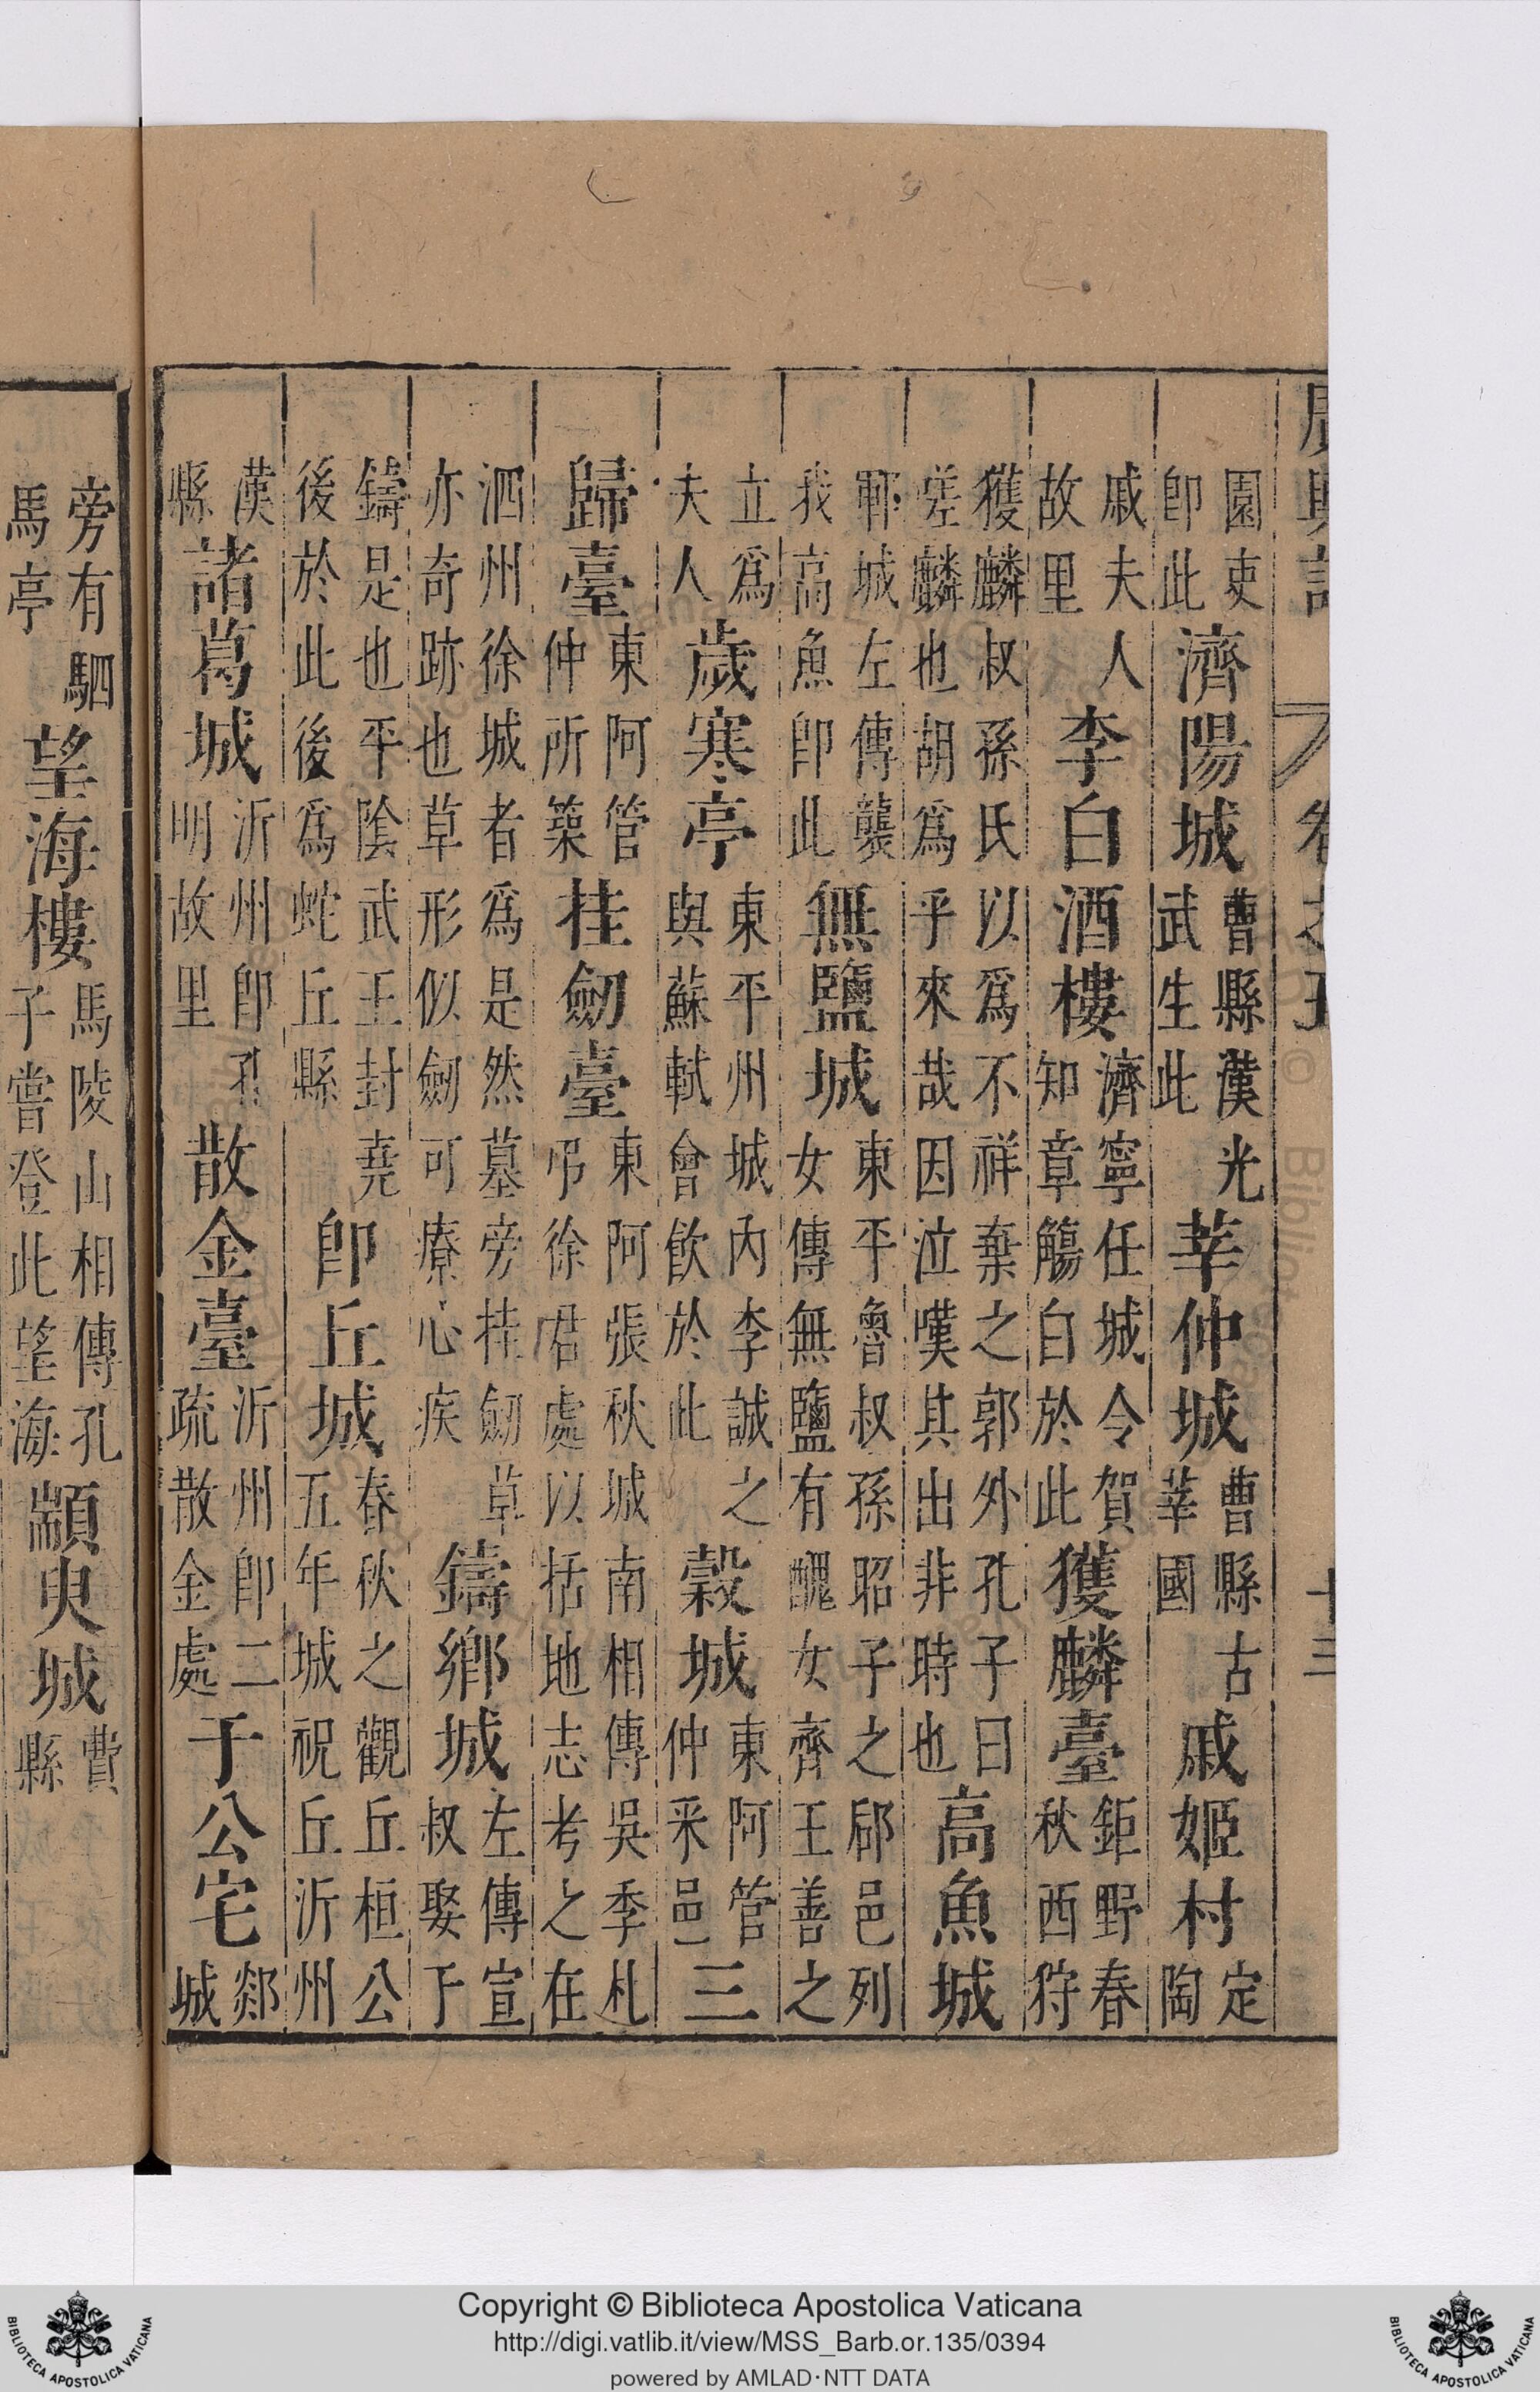 廣輿記 卷之五 十三
園吏即此濟陽城曹縣漢光武生此莘仲城曹縣古莘國戚姬村定陶
戚夫人故里李白酒樓濟寧任城令賀知章觴白於此獲麟臺鉅野春秋西狩
獲麟叔孫氏以爲不祥棄之郭外孔子曰嗟麟也胡爲乎來哉因泣嘆其出非時也高魚城
鄆城左傳襲我高魚即此無鹽城東平魯叔孫昭子之郈邑列女傳無鹽有醜女齊王善之
立爲夫人歲寒亭東平州城内李誠之與蘇軾會飲於此穀城東阿管仲釆邑三
歸臺東阿管仲所築挂劒臺東阿張秋城南相傳吳季札弔徐君處以括地志考之在
泗州徐城者爲是然墓旁挂劒草亦奇跡也草形似劒可療心疾鑄鄉城左傳宣叔娶于
鑄是也平陰武王封堯後於此後爲蛇丘縣即丘城春秋之觀丘桓公五年城祝丘沂州
漢縣諸葛城沂州即孔明故里散金臺沂州即二疏散金處于公宅郯城
旁有駟馬亭望海樓馬陵山相傳孔子嘗登此望海顓臾城費縣
Copyright © Biblioteca Apostolica Vaticana
http://digi.vatlib.it/view/MSS_Barb.or.135/0394
powered by AMLAD·NTT DATA
BIBLIOTECA APOSTOLICA VATICANA
BIBLIOTECA APOSTOLICA VATICANA